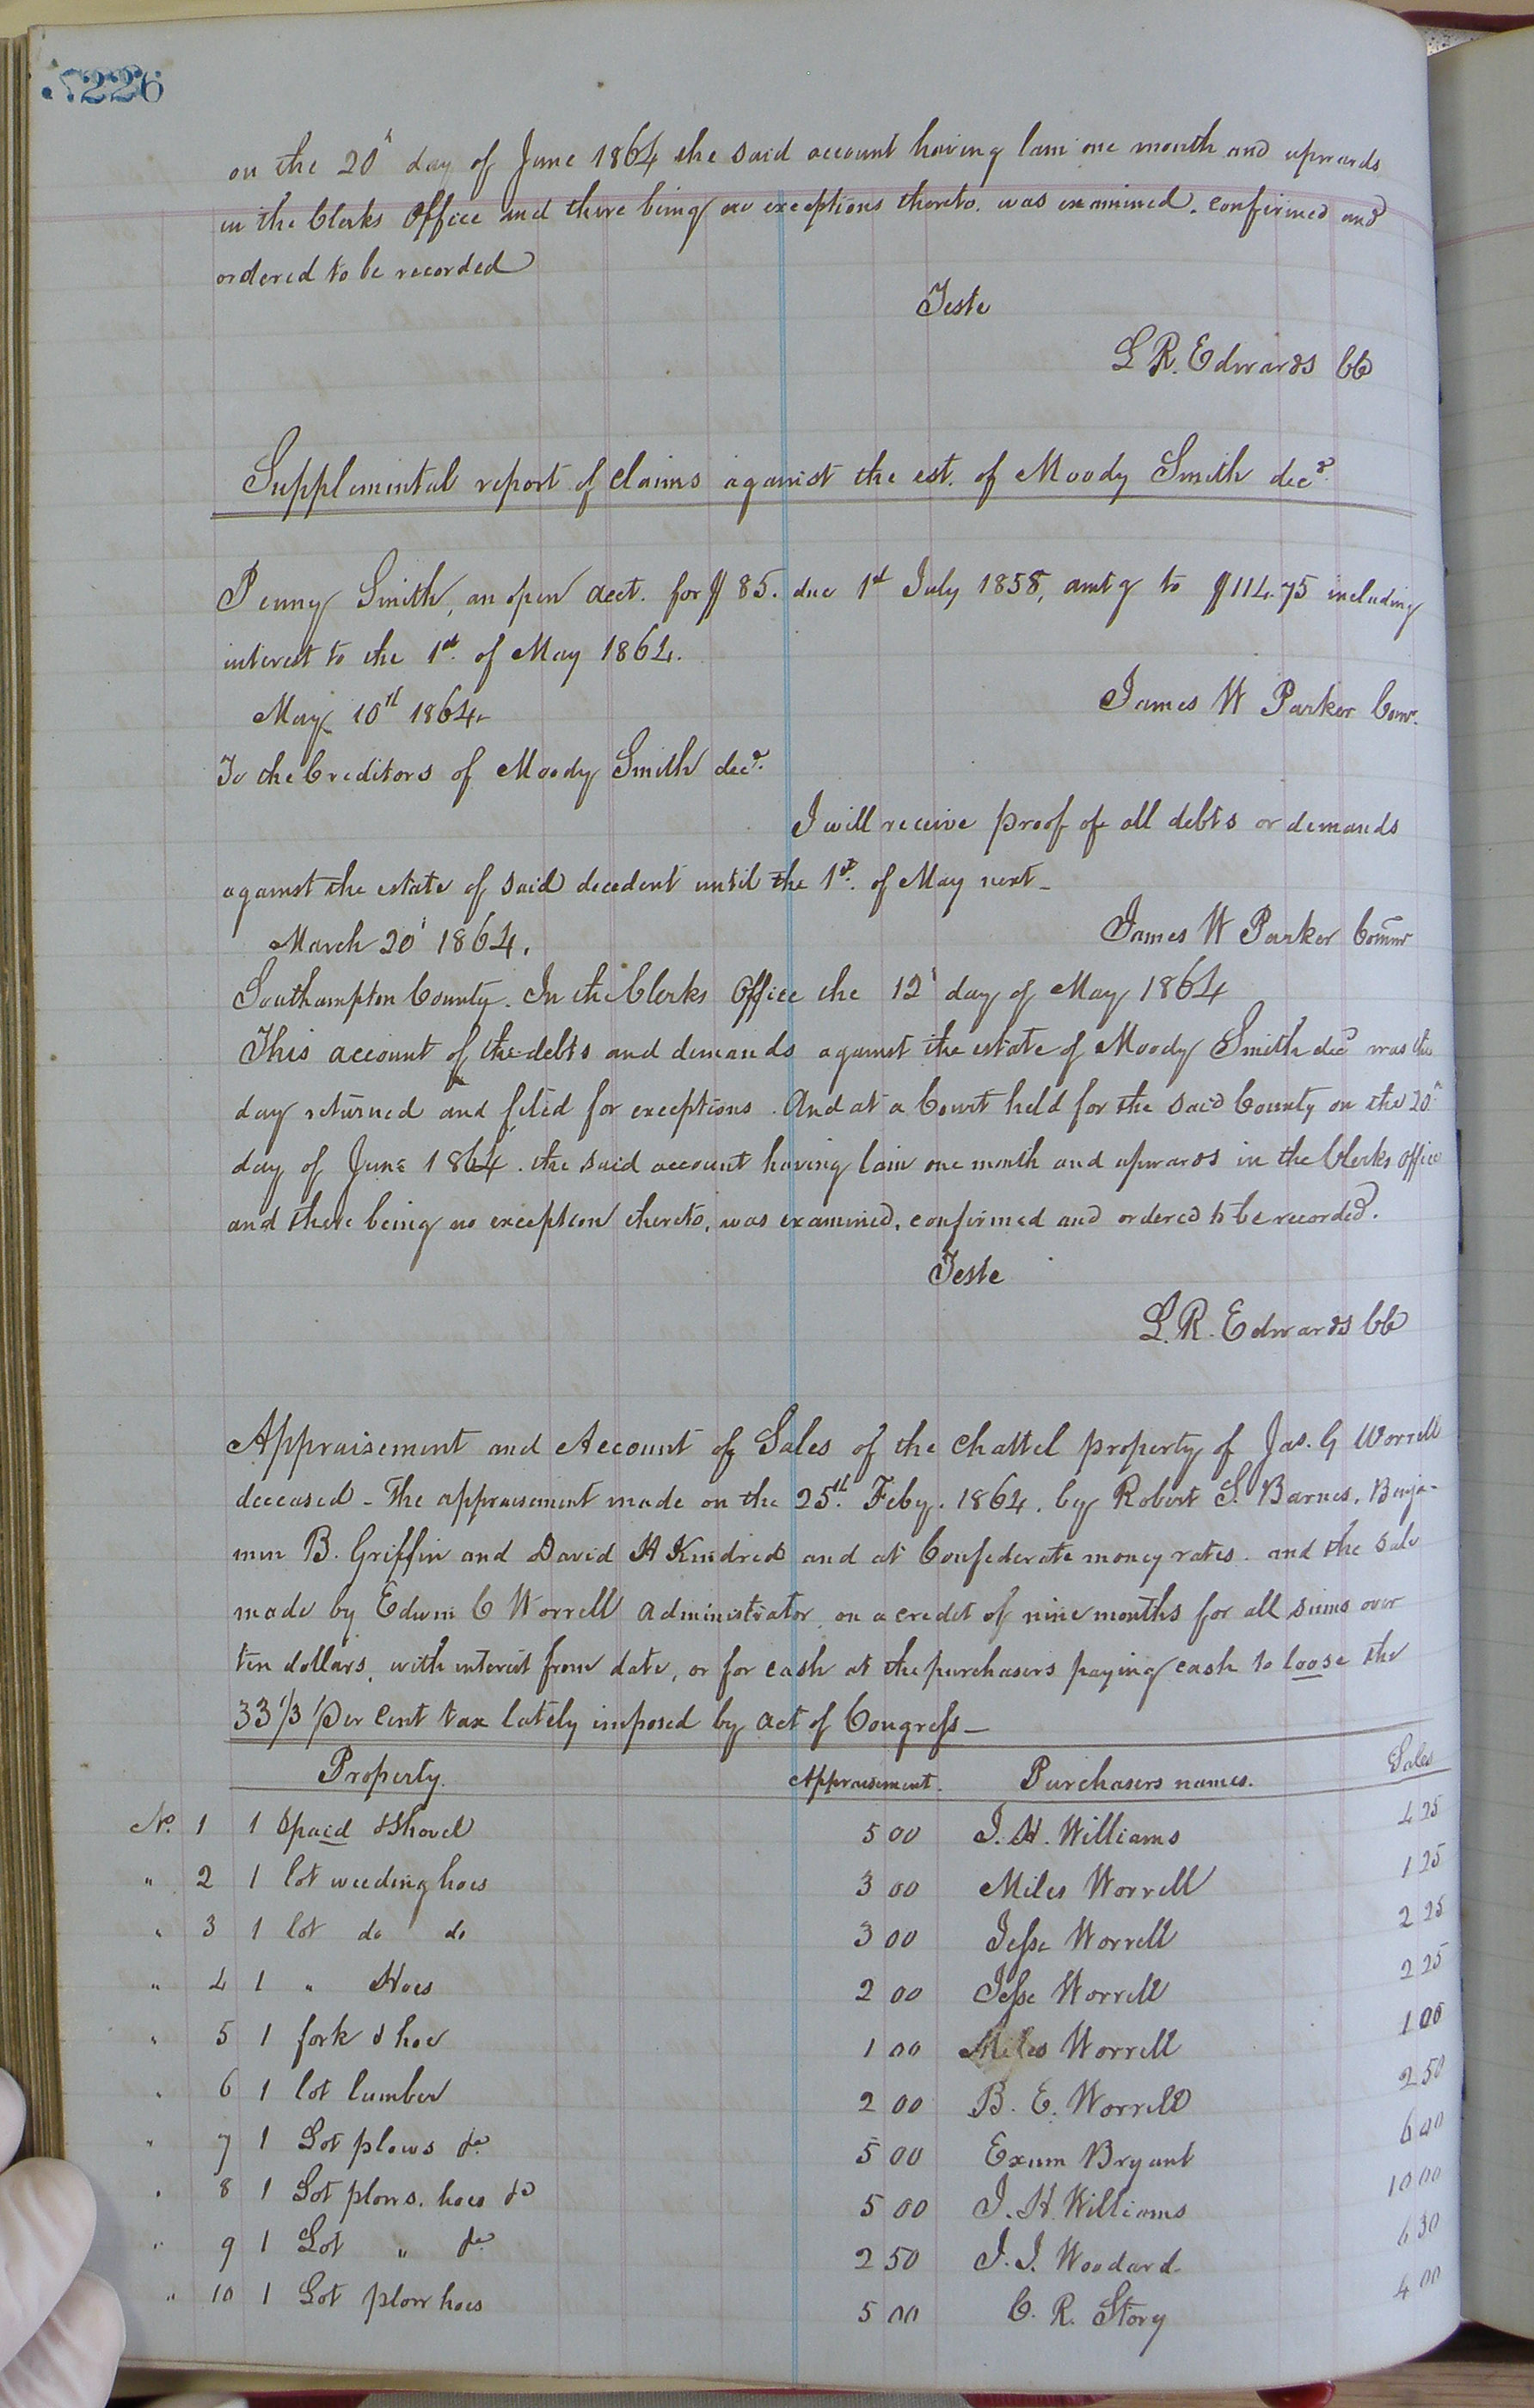 226
on the 20h day of June 1864 the said account having lain one month and upwards
in the Clerks Office and there being no exceptions thereto. was examined. confirmed and
ordered to be recorded
Teste
L R. Edwards CC
Supplemental report of claims against the est. of Moody Smith decd.
Penny Smith, an open acct. for $85. due 1st July 1858, amtg to $114.75 including
interest to the 1st. of May 1864.
May 10th 1864
James W Parker Comr.
To the Creditors of Moody Smith decd.
I will receive proof of all debts or demands
against the estate of said decedent until the 1st. of May next_
March 20h 1864.
James W Parker Commr
Southampton County. In the Clerks Office the 12h day of May 1864
This account of the debts and demands against the estate of Moody Smith decd was this
day returned and filed for exceptions. And at a Court held for the said County on the 20h
day of June 1864. the said account having lain one month and upwards in the Clerks office
and there being no exception thereto, was examined, confirmed and ordered to be recorded.
Teste
L. R. Edwards CC
Appraisement and Account of Sales of the Chattel property of Jas. G Worrell
deceased - The appraisement made on the 25th. Feby. 1864. by Robert S. Barnes, Benja-
min B. Griffin and David H Kindred and at Confederate money rates. and the sale
made by Edwin C Worrell Administrator. on a credit of nine months for all sums over
ten dollars, with interest from date, or for cash at the purchasers paying cash to loose the
33 1/3 per cent tax lately imposed by act of Congress_
Property. Appraisement. Purchasers names. Sales
No. 1 1 Spaid & Shovel 5 00 J. H. Williams 4 25
" 2 1 lot weeding hoes 3 00 Miles Worrell 1 25
" 3 1 lot do do 3 00 Jesse Worrell 2 25
" 4 1 " Hoes 2 00 Jesse Worrell 2 25
" 5 1 fork & hoe 1 00 Miles Worrell 1 00
" 6 1 lot lumber 2 00 B. E. Worrell 2 50
" 7 1 Lot plows &c 5 00 Exum Bryant 6 00
" 8 1 Lot plows. hoes &c 5 00 J. H. Williams 10 00
" 9 1 Lot " &c 2 50 J. J. Woodard 6 30
" 10 1 Lot plow hoes 5 00 C. R. Story 4 00